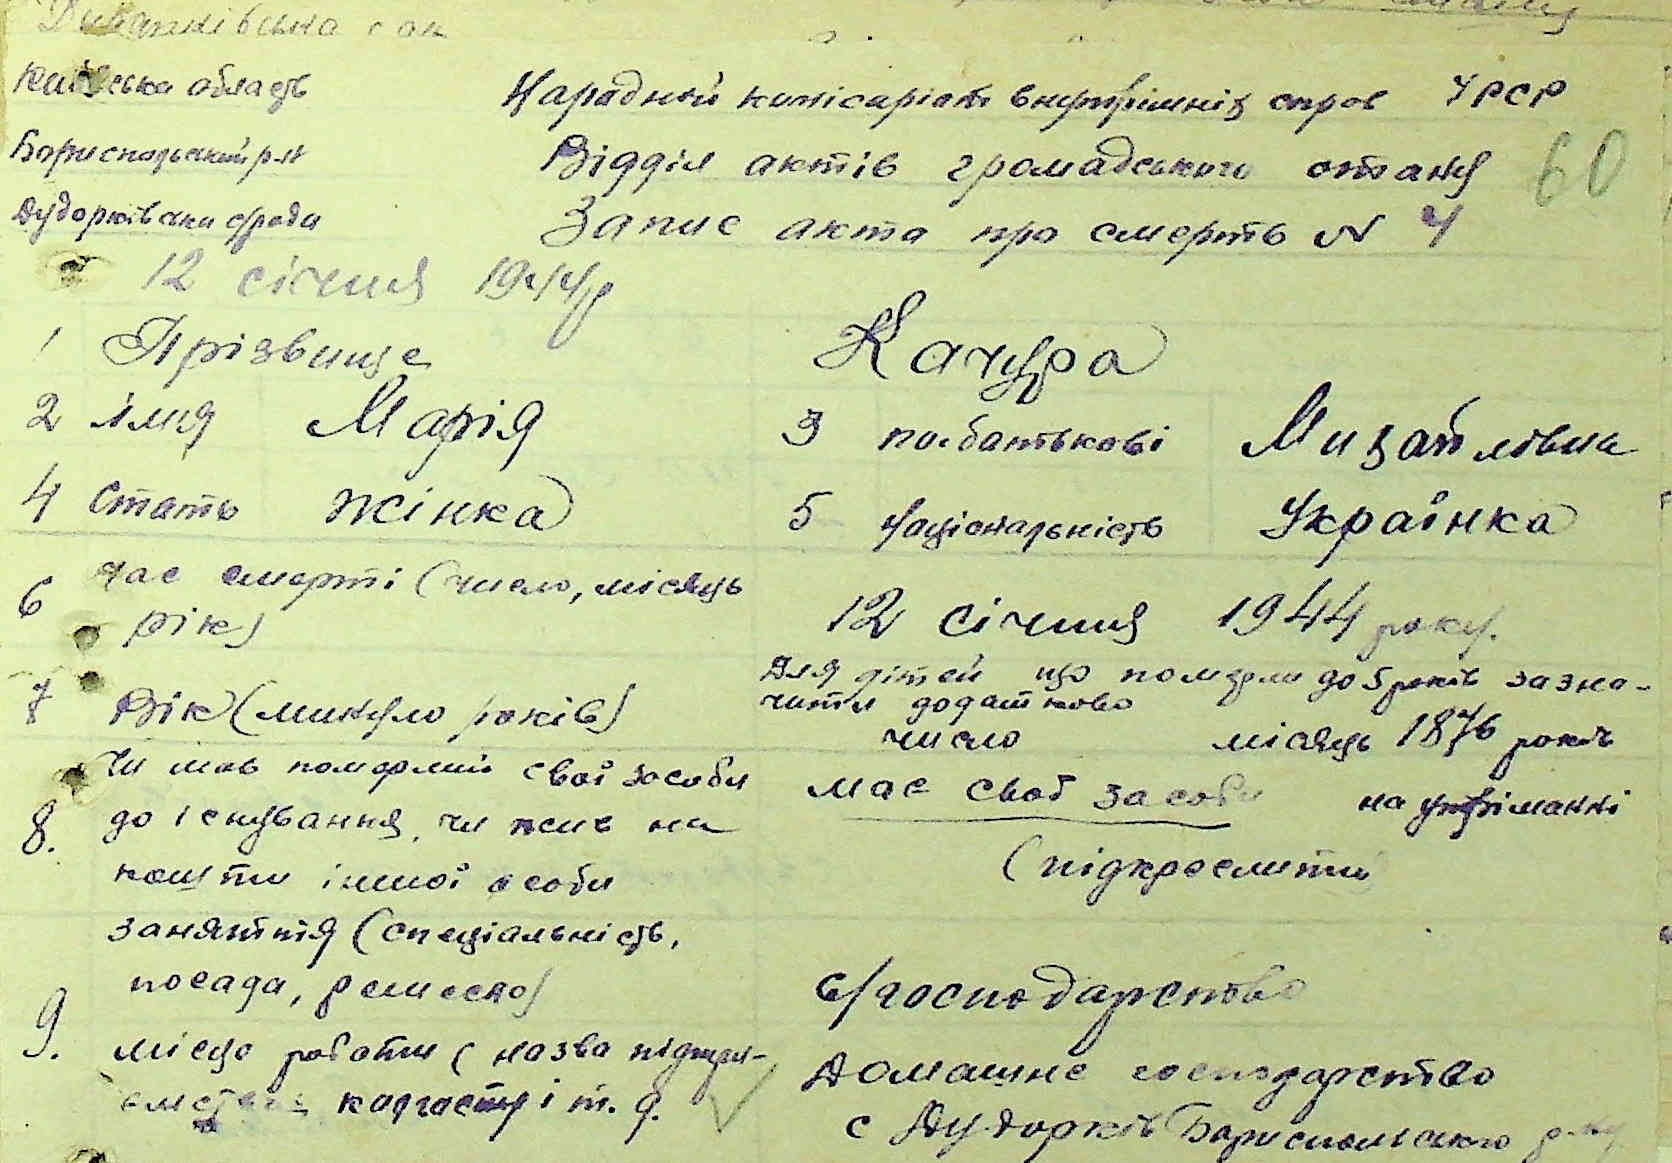 Київська область
Народний комісаріат внутрішніх справ УРСР
Бориспольський р-н
Відділ актів громадського стану 60
Дудорківська с/рада
Запис акта про смерть N 4
12 січня 1944 р
1 Прізвище Качура
2 імия Марія 3 по батькові Михайлівна
4 Стать жінка 5 Національність Українка
6 час смерті (число, місяць рік) 12 січння 1944 року.
7 Вік (минуло років)
Для дітей що померли до 5 років зазна-
чити додатково
число місяць 1876 років
8. Чи мав померлий свої засоби
до існування, чи жив на
кошти іншої особи
має свої засоби на утриманні
(підкреслити)
9. заняття (спеціальність,
посада, ремесло)
с/господарство
місце роботи (назва підпри-
ємства колгоспу і т. д.
Домашнє господарство
с Дудорків Бориспольського р-ну